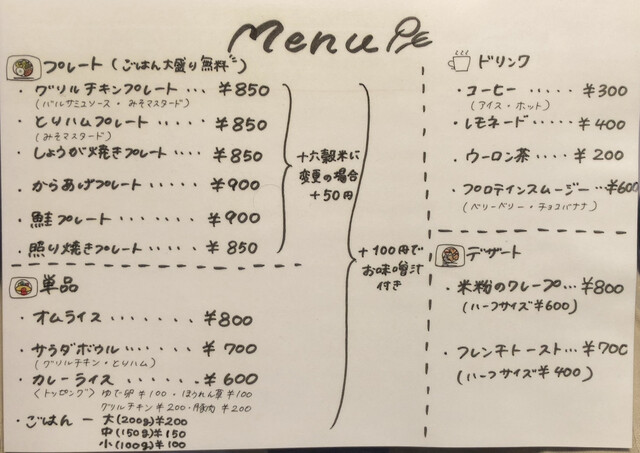 Menu
プレート (ごはん大盛り無料)
・グリルチキンプレート .... ¥850
(バルサミコソース・みそマスタード)
・とりハムプレート ..... ¥850
(みそマスタード)
・しょうが焼きプレート ... ¥850
・からあげプレート ...... ¥900
・鮭プレート ....... ¥900
・照り焼きプレート ..... ¥850
十六穀米に
変更の場合
+50円
+100円で
お味噌汁
付き
単品
・オムライス ....... ¥800
・サラダボウル ...... ¥700
(グリルチキン・とりハム)
・カレーライス ....... ¥600
〈トッピング〉ゆで卵 ¥100・ほうれん草 ¥100
グリルチキン ¥200・豚肉 ¥200
・ごはん ー 大(200g)¥200
中(150g)¥150
小(100g)¥100
ドリンク
・コーヒー ..... ¥300
(アイス・ホット)
・レモネード ..... ¥400
・ウーロン茶 .... ¥200
・プロテインスムージー ... ¥600
(ベリーベリー・チョコバナナ)
デザート
・米粉のクレープ... ¥800
(ハーフサイズ¥600)
・フレンチトースト... ¥700
(ハーフサイズ¥400)